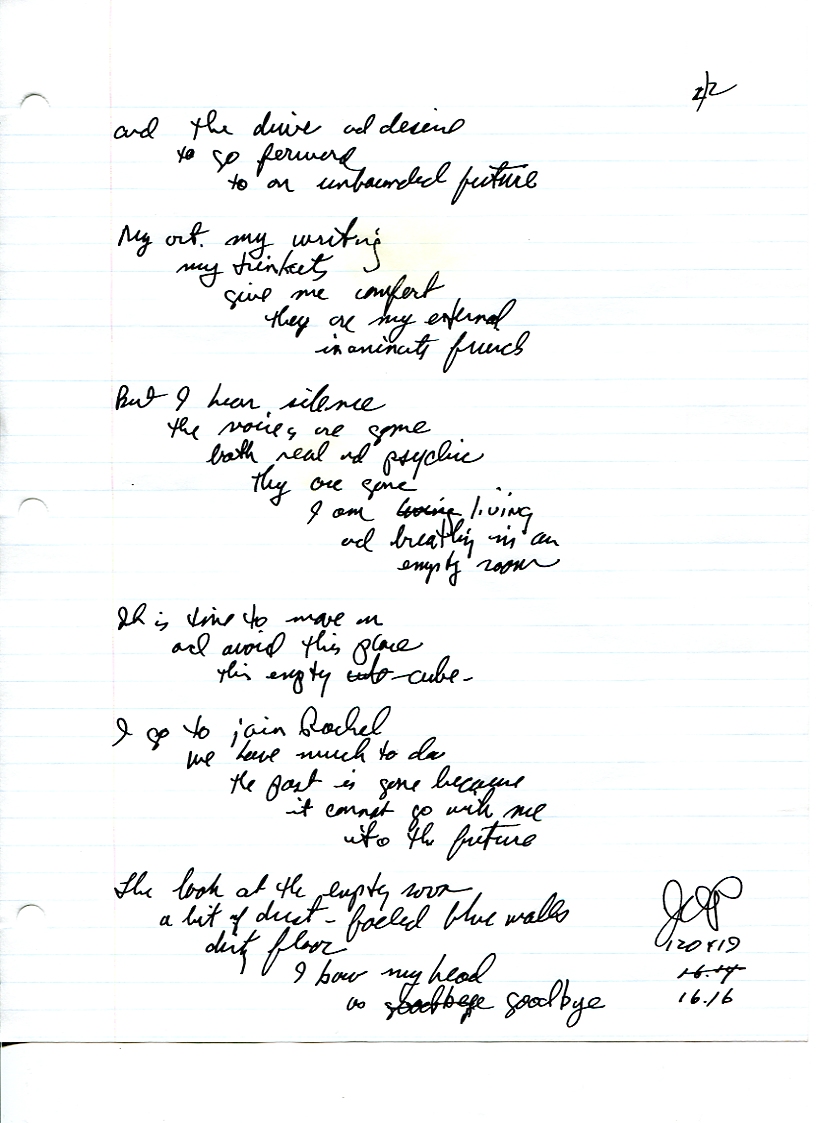 2/2
and the drive and desire
to go forward
to an unbounded future
My art. my writing
my trinkets
give me comfort
they are my external
inanimate friends
But I hear silence
the voices are gone
both real and psychic
they are gone
I am living living
and breathing in an
empty room
It is time to move on
and avoid this place
this empty cube-
I go to join Rachel
we have much to do
the past is gone because
it cannot go with me
into the future
The look at the empty room
a bit of dust - faded blue walls
dirty floor
I bow my head
as goodbye goodbye
120419
16.14
16.16